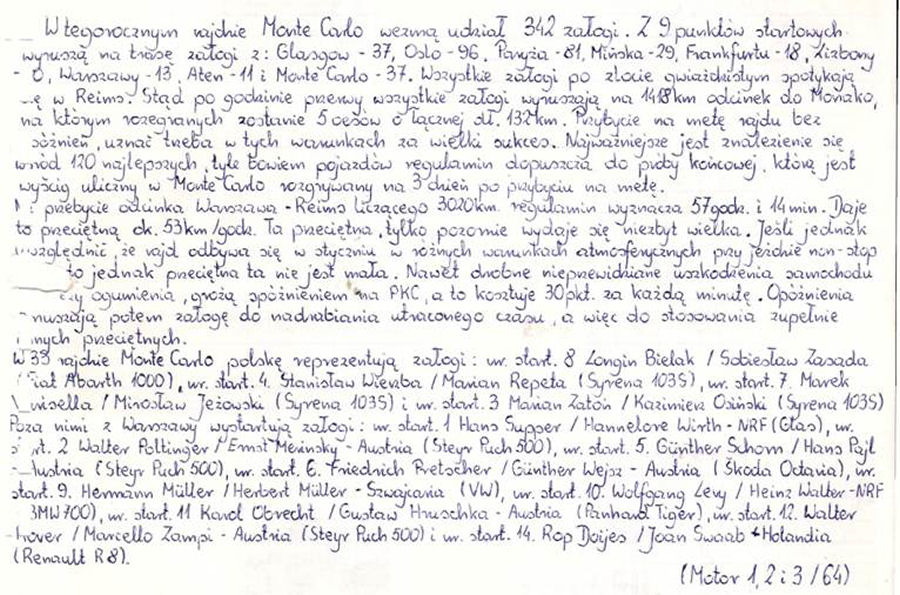 W tegorocznym rajdzie Monte Carlo wezmą udział 342 załogi. Z 9 punktów startowych
wyruszą na trasę załogi z: Glasgow - 37, Oslo - 96, Paryża - 81, Mińska - 29, Frankfurtu - 18, Lizbony
- 0, Warszawy - 13, Aten - 11 i Monte Carlo - 37. Wszystkie załogi po zlocie gwiaździstym spotykają
się w Reims. Stąd po godzinie przerwy wszystkie załogi wyruszają na 1418km odcinek do Monako,
na którym rozegranych zostanie 5 oesów o łącznej dł. 132km. Przybycie na metę rajdu bez
późnień, uznać trzeba w tych warunkach za wielki sukces. Najważniejsze jest znalezienie się
wśród 120 najlepszych, tyle bowiem pojazdów regulamin dopuszcza do próby końcowej, którą jest
wyścig uliczny w Monte Carlo rozgrywany na 3 dzień po przybyciu na metę.
przebycie odcinka Warszawa - Reims liczącego 3020km. regulamin wyznacza 57godz. i 14 min. Daje
to przeciętną ok. 53km/godz. Ta przeciętna, tylko pozornie wydaje się niezbyt wielka. Jeśli jednak
uwzględnić, że rajd odbywa się w styczniu w różnych warunkach atmosferycznych przy jeździe non-stop
to jednak przeciętna ta nie jest mała. Nawet drobne nieprzewidziane uszkodzenia samochodu
czy ogumienia, grożą spóźnieniem na PKC, a to kosztuje 30pkt. za każdą minutę. Opóźnienia
zmuszają potem załogę do nadrabiania utraconego czasu, a więc do stosowania zupełnie
innych przeciętnych.
W 33 rajdzie Monte Carlo polskę reprezentują załogi: nr. start. 8 Longin Bielak / Sobiesław Zasada
(Fiat Abarth 1000), nr. start. 4. Stanisław Wierzba / Marian Repeta (Syrena 103S), nr. start. 7. Marek
Varisella / Mirosław Jeżowski (Syrena 103S) i nr. start. 3 Marian Zatoń / Kazimierz Osiński (Syrena 103S)
Poza nimi z Warszawy wystartują załogi: nr. start. 1 Hans Supper / Hannelore Wirth - NRF (Glas), nr.
start. 2 Walter Pöltinger / Ernst Merinsky - Austria (Steyr Puch 500), nr. start. 5. Günther Schorn / Hans Pajl
- Austria (Steyr Puch 500), nr. start. 6. Friedrich Pretscher / Günther Wejsz - Austria (Škoda Octavia), nr.
start. 9. Hermann Müller / Herbert Müller - Szwajcaria (VW), nr. start. 10. Wolfgang Levy / Heinz Walter - NRF
BMW 700), nr. start. 11 Karol Obrecht / Gustaw Hruschka - Austria (Panhard Tiger), nr. start. 12. Walter
hover / Marcello Zampi - Austria (Steyr Puch 500) i nr. start. 14. Rop Doijes / Joan Swaab - Holandia
(Renault R8).
(Motor 1,2 i 3 /64)